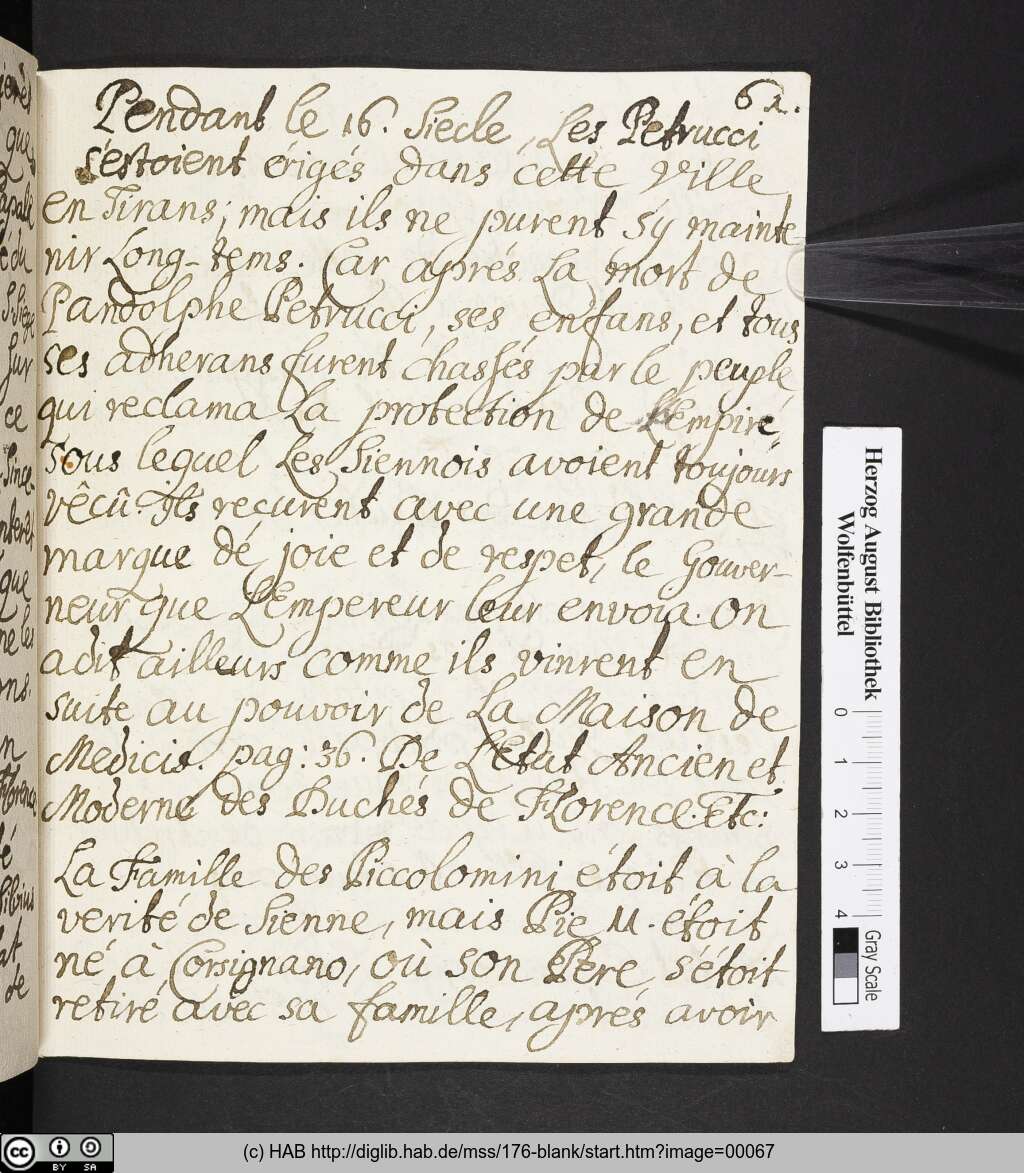 61.
Pendant le 16. Siecle, Les Petrucci
s'estoient érigés dans cette Ville
en Tirans; mais ils ne purent s'y mainte
nir Long-tems. Car aprés La mort de
Pandolphe Petrucci, ses enfans, et tous
ses adherans furent chassés par le peuple
qui reclama La protection de L'Empire,
sous lequel Les Siennois avoient toujours
vêcû. Ils recurent avec une grande
marque dé joie et de respet, le Gouver-
neur que L'Empereur leur envoia. On
a dit ailleurs comme ils vinrent en
suite au pouvoir de La Maison de
Medicis. pag: 36. De L'Etat Ancien et
Moderne des Duchés de Florence. Etc:
La Famille des Piccolomini étoit à la
verité de Sienne, mais Pie II. étoit
né à Corsignano, où son Pere s'étoit
retiré avec sa famille, aprés avoir
Herzog August Bibliothek
Wolfenbüttel
0 1 2 3 4
Gray Scale
cc BY SA
(c) HAB http://diglib.hab.de/mss/176-blank/start.htm?image=00067